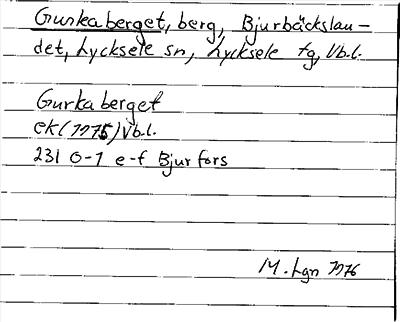 Gurkaberget, berg, Bjurbäckslan-
det, Lycksele sn, Lycksele tg, Vb.l.
Gurkaberget
ek (1975) Vb.l.
23I 0-1 e-f Bjurfors
M. Lgn 1976